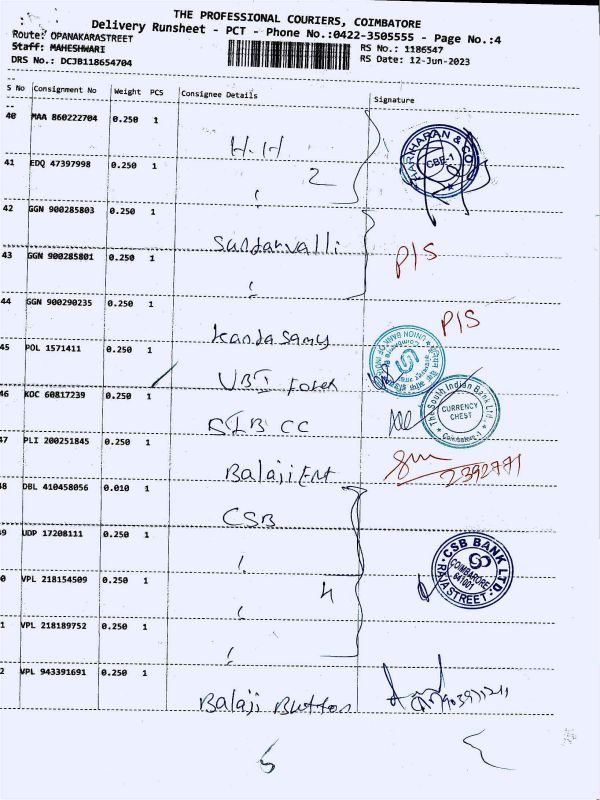 THE PROFESSIONAL COURIERS, COIMBATORE
Delivery Runsheet - PCT - Phone No.:0422-3505555 - Page No.:4
Route: OPANAKARASTREET
RS No.: 1186547
Staff: MAHESHWARI
RS Date: 12-Jun-2023
DRS No.: DCJB118654704
S No Consignment No Weight PCS Consignee Details Signature
40 MAA 860222704 0.250 1
H.H
HARIHARAN & CO
CBE-1
41 EDQ 47397998 0.250 1
2
42 GGN 900285803 0.250 1
Sundarvalli
P/S
43 GGN 900285801 0.250 1
44 GGN 900290235 0.250 1
Kandasamy
P/S
UNION BANK OF INDIA
45 POL 1571411 0.250 1
UBI Forex
46 KOC 60817239 0.250 1
SIB CC
The South Indian Bank Ltd.
CURRENCY
CHEST
Coimbatore-1
47 PLI 200251845 0.250 1
Balaji Ent
2392771
48 DBL 410458056 0.010 1
CSB
49 UDP 17208111 0.250 1
CSB BANK LTD.
COIMBATORE
641001
RAJA STREET
0 VPL 218154509 0.250 1
4
1 VPL 218189752 0.250 1
2 VPL 943391691 0.250 1
Balaji Button